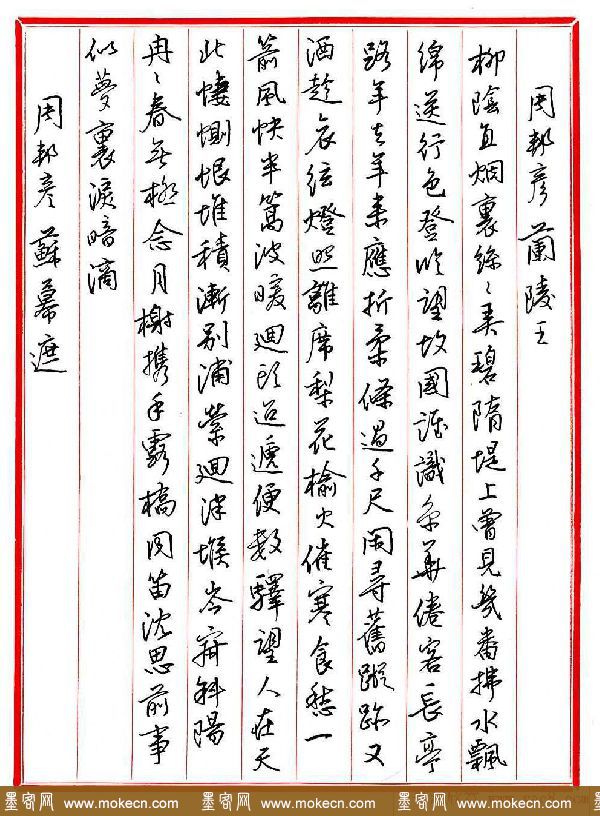 周邦彥 蘭陵王
柳陰直烟裏絲〻弄碧隋堤上曾見幾番拂水飄
綿送行色登臨望故國誰識京華倦客長亭
路年去年來應折柔條過千尺閑尋舊蹤跡又
酒趁哀弦燈照離席梨花榆火催寒食愁一
箭風快半篙波暖迴頭迢遞便數驛望人在天
北悽惻恨堆積漸別浦縈迴津堠岑寂斜陽
冉〻春無極念月榭携手露橋聞笛沈思前事
似夢裏淚暗滴
周邦彥 蘇幕遮
墨客网 www.mokecn.com 墨客网 www.mokecn.com 墨客网 www.mokecn.com